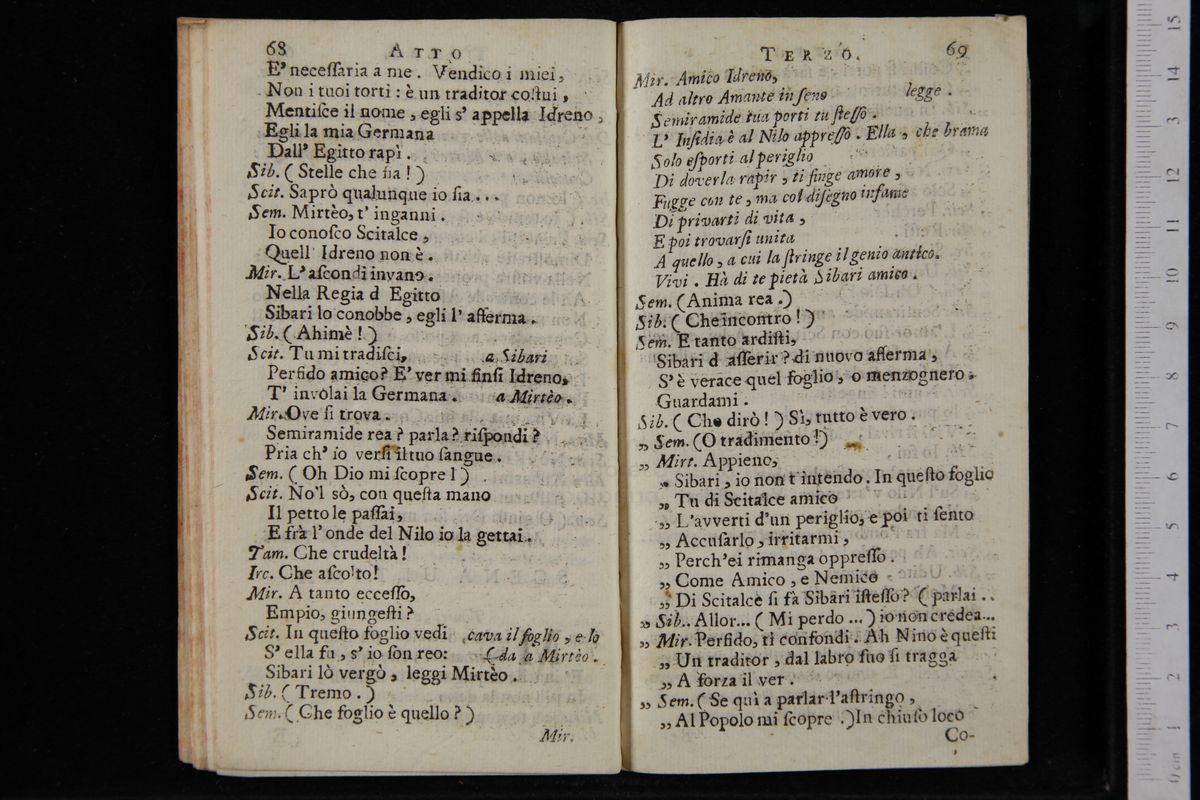 68 ATTO
E' neceſſaria a me. Vendico i miei,
Non i tuoi torti: è un traditor coſtui,
Mentiſce il nome, egli s' appella Idreno,
Egli la mia Germana
Dall' Egitto rapì.
Sib. (Stelle che fia!)
Scit. Saprò qualunque io ſia...
Sem. Mirtèo, t' inganni.
Io conoſco Scitalce,
Quell' Idreno non è.
Mir. L' aſcondi invano.
Nella Regia d Egitto
Sibari lo conobbe, egli l' afferma.
Sib. (Ahimè!)
Scit. Tu mi tradiſci, a Sibari
Perfido amico? E' ver mi finſi Idreno,
T' involai la Germana. a Mirtèo.
Mir. Ove ſi trova.
Semiramide rea? parla? riſpondi?
Pria ch' io verſi il tuo ſangue.
Sem. (Oh Dio mi ſcopre!)
Scit. No'l sò, con queſta mano
Il petto le paſſai,
E frà l' onde del Nilo io la gettai.
Tam. Che crudeltà!
Irc. Che aſcolto!
Mir. A tanto ecceſſo,
Empio, giungeſti?
Scit. In queſto foglio vedi cava il foglio, e lo
S' ella fu, s' io ſon reo: (da a Mirtèo.
Sibari lò vergò, leggi Mirtèo.
Sib. (Tremo.)
Sem. (Che foglio è quello?)
Mir.
TERZO. 69
Mir. Amico Idreno,
Ad altro Amante in ſeno legge.
Semiramide tua porti tu ſteſſo.
L' Inſidia è al Nilo appreſſo. Ella, che brama
Solo eſporti al periglio
Di doverla rapir, ti finge amore,
Fugge con te, ma col diſegno infame
Di privarti di vita,
E poi trovarſi unita
A quello, a cui la ſtringe il genio antico.
Vivi. Hà di te pietà Sibari amico.
Sem. (Anima rea.)
Sib. (Che incontro!)
Sem. E tanto ardiſti,
Sibari d' aſſerir? di nuovo afferma,
S' è verace quel foglio, o menzognero.
Guardami.
Sib. (Che dirò!) Sì, tutto è vero.
„ Sem. (O tradimento!)
„ Mirt. Appieno,
„ Sibari, io non t intendo. In queſto foglio
„ Tu di Scitalce amico
„ L'avverti d'un periglio, e poi ti ſento
„ Accuſarlo, irritarmi,
„ Perch'ei rimanga oppreſſo.
„ Come Amico, e Nemico
„ Di Scitalce ſi fà Sibari iſteſſo? (parlai..
„ Sib.. Allor... (Mi perdo...) io non credea...
„ Mir. Perfido, ti confondi. Ah Nino è queſti
„ Un traditor, dal labro ſuo ſi tragga
„ A forza il ver.
„ Sem. (Se quì a parlar l'aſtringo,
„ Al Popolo mi ſcopre.) In chiuſo loco
Co-
0 cm 1 2 3 4 5 6 7 8 9 10 11 12 13 14 15